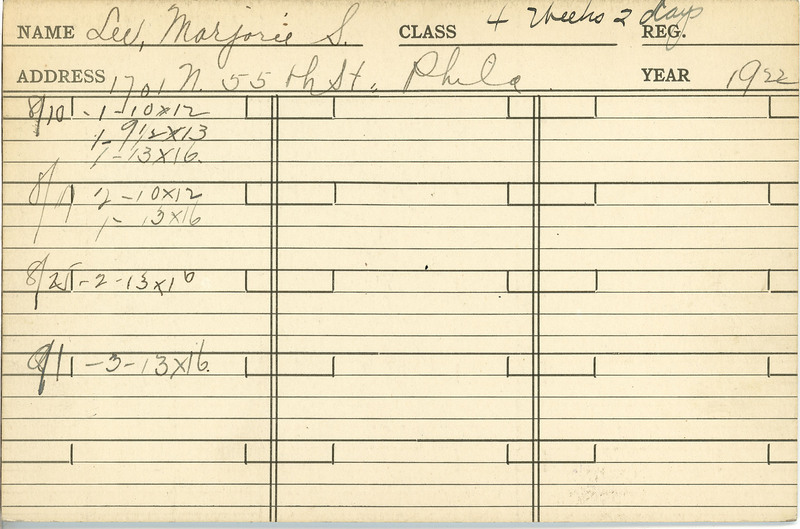 NAME Lee, Marjorie S. CLASS 4 Weeks 2 days REG.
ADDRESS 1701 N. 55 th St., Phila. YEAR 1922
8/10 - 1 - 10x12
1- 9 1/2 x13
1 - 13x16.
8/ - 10x12
1- 13x16
8/25 - 2 - 13x16
9/1 - 3 - 13x16.